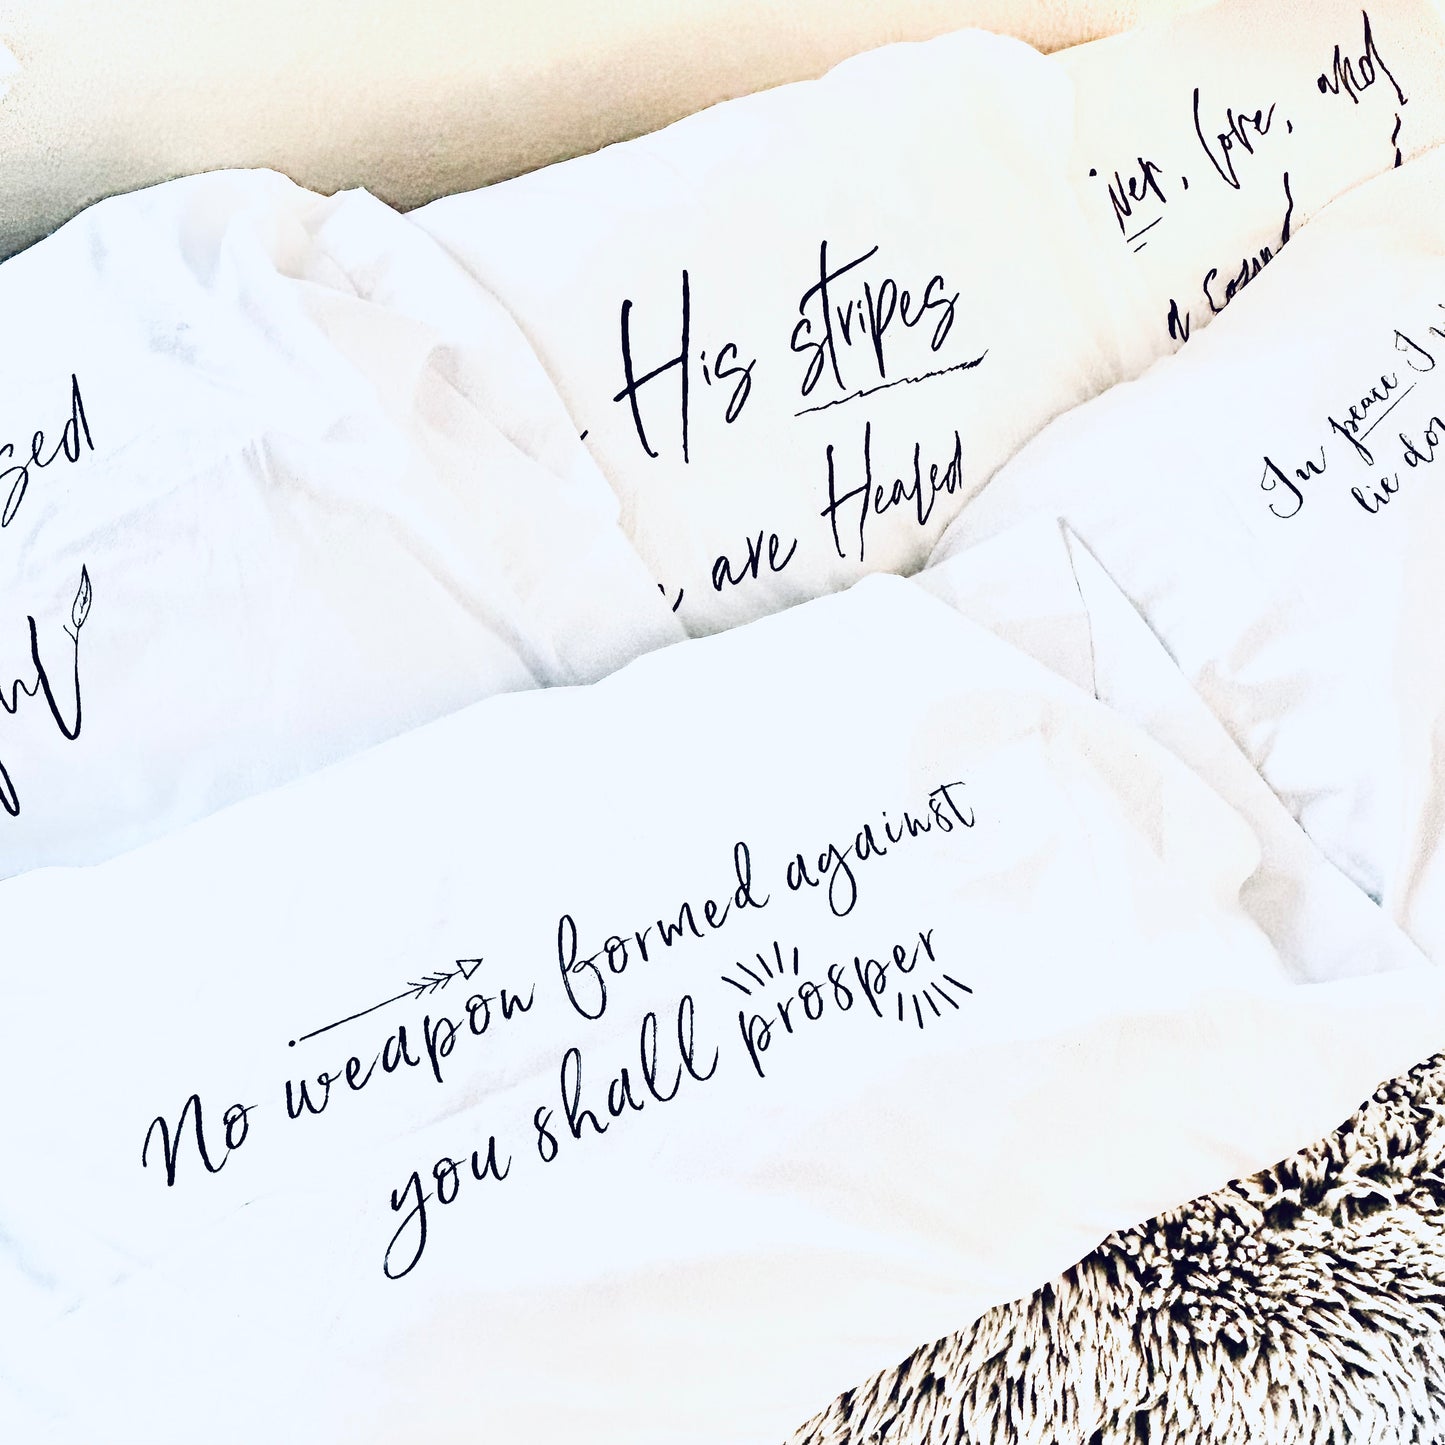 sed
His stripes
are Healed
wer, love, and
In peace I
lie down
No weapon formed against
you shall prosper